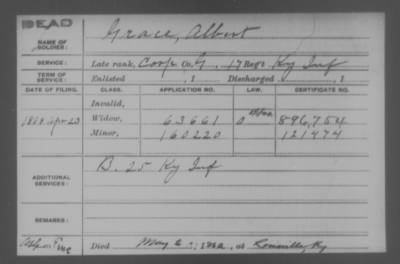 DEAD
NAME OF SOLDIER: Grace, Albert
SERVICE: Late rank, Corp Co. G, 17 Reg't Ky Inf
TERM OF SERVICE: Enlisted , 1 Discharged , 1
DATE OF FILING. CLASS. APPLICATION NO. LAW. CERTIFICATE NO.
Invalid,
1864 Apr 23 Widow, 63661 896,754
Minor, 160220 121474
ADDITIONAL SERVICES: B. 25 Ky Inf
REMARKS:
Died May 6, 1862, at Louisville, Ky